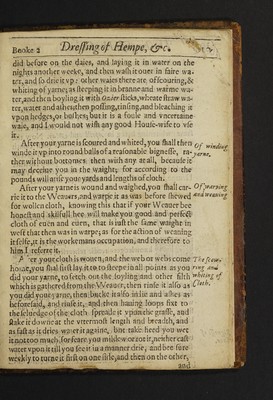 Booke 2 Dressing of Hempe, &c.
did before on the daies, and laying it in water on the
nights another weeke, and then wash it ouer in faire wa-
ter, and so drie it vp: other waies there are of scouring, &
whiting of yarne; as steeping it in branne and warme wa-
ter, and then boyling it with Ozier sticks, wheate straw wa-
ter, water and ashes, then possing, rinsing, and bleaching it
vpon hedges, or bushes; but it is a foule and vncertaine
waie, and I would not wish any good House-wife to vse
it.
After your yarne is scoured and whited, you shall then
winde it vp into round balls of a reasonable bignesse, ra-
ther without bottomes then with any at all, because it
may deceiue you in the waight, for according to the
pounds will arise your yards and lengths of cloth.
Of winding
yarne,
After your yarne is wound and waighed, you shall car-
rie it to the Weauers, and warpe it as was before shewed
for wollen cloth, knowing this that if your Weauer bee
honest and skilfull hee will make you good and perfect
cloth of euen and euen, that is iust the same waight in
weft that then was in warpe; as for the action of weauing
it selfe, it is the workemans occupation, and therefore to
him I referre it.
Of warping
and weauing
After your cloth is wouen, and the web or webs come
home, you shall first lay it to steepe in all points as you
did your yarne, to fetch out the soyling and other filth
which is gathered from the Weauer, then rinse it also as
you did your yarne, then bucke it also in lie and ashes as
beforesaid, and rinse it, and then hauing loops fixt to
the seluedge of the cloth spreade it vpon the grasse, and
stake it downe at the vttermost length and breadth, and
as fast as it dries water it againe, but take heed you wet
it not too much, for feare you mildew or rot it, neither cast
water vpon it till you see it in a manner drie, and bee sure
weekly to turne it first on one side, and then on the other,
and
The scow-
ring and
whiting of
Cloth.